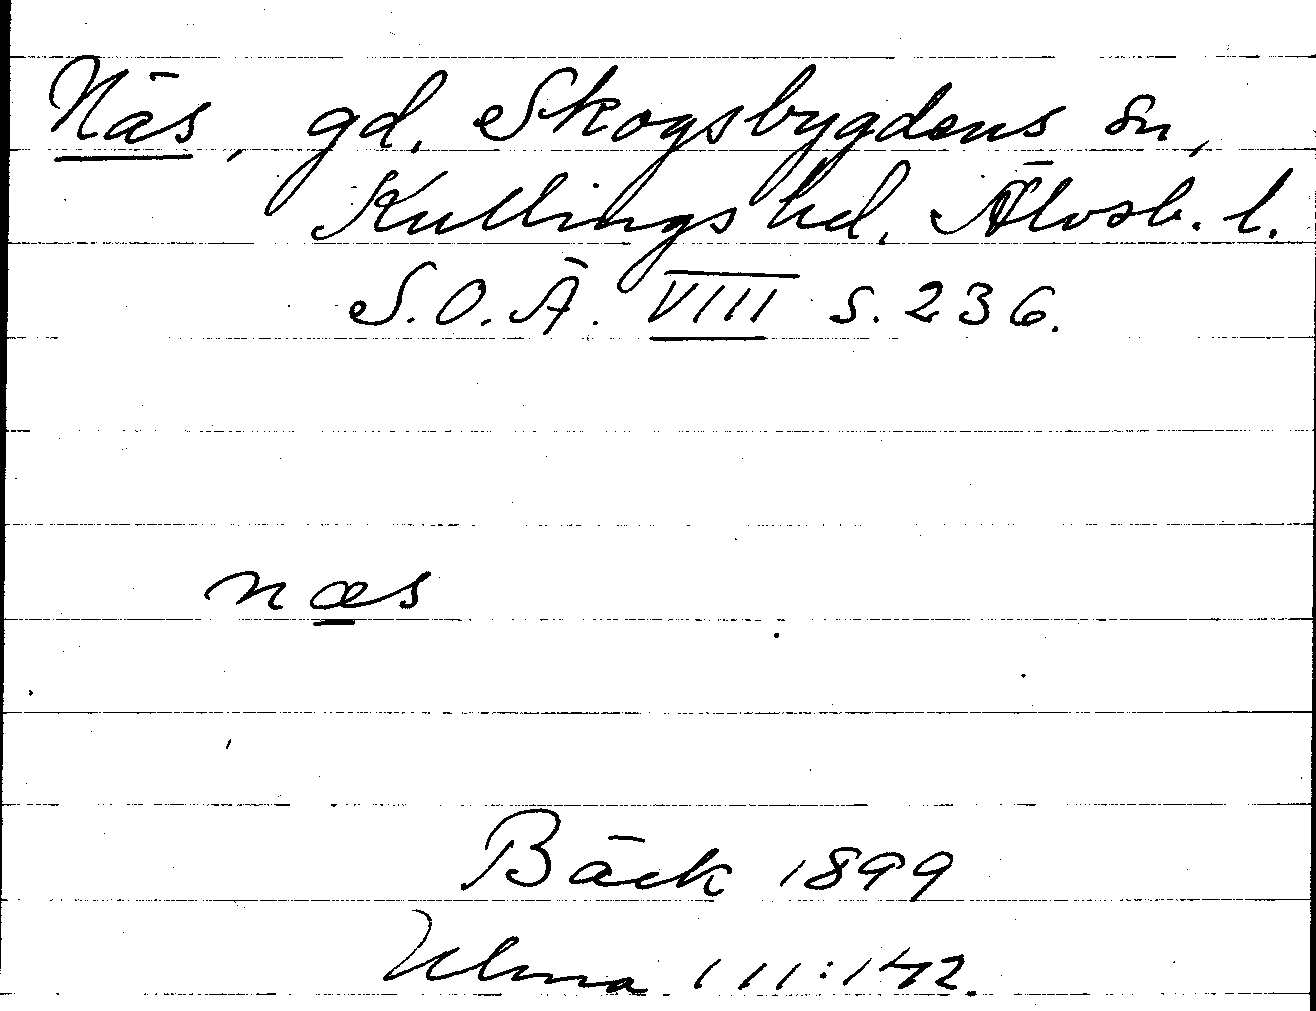 Näs, gd. Skogsbygdens sn,
Kullings hd. Älvsb. l.
S.O.Ä. VIII s. 236.
næs
Bäck 1899
Ulma 111:142.